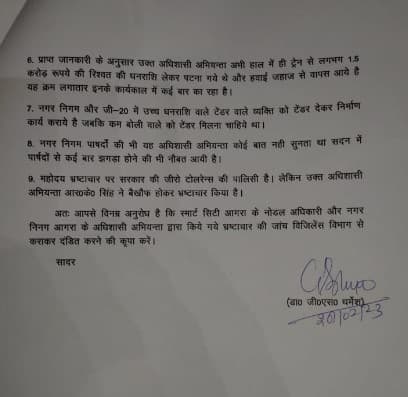 6. प्राप्त जानकारी के अनुसार उक्त अधिशासी अभियन्ता अभी हाल में ही ट्रेन से लगभग 1.5
करोड़ रूपये की रिश्वत की धनराशि लेकर पटना गये थे और हवाई जहाज से वापस आये है
यह क्रम लगातार इनके कार्यकाल में कई बार का रहा है।
7. नगर निगम और जी–20 में उच्च धनराशि वाले टेंडर वाले व्यक्ति को टेंडर देकर निर्माण
कार्य कराये है जबकि कम बोली वाले को टेंडर मिलना चाहिये था।
8. नगर निगम पार्षदों की भी यह अधिशासी अभियन्ता कोई बात नही सुनता था सदन में
पार्षदों से कई बार झगड़ा होने की भी नौबत आयी है।
9. महोदय भ्रष्टाचार पर सरकार की जीरो टोलरेन्स की पालिसी है। लेकिन उक्त अधिशासी
अभियन्ता आर०के० सिंह ने बैखौफ होकर भ्रष्टाचार किया है।
अतः आपसे विनम्र अनुरोध है कि स्मार्ट सिटी आगरा के नोडल अधिकारी और नगर
निगम आगरा के अधिशासी अभियन्ता द्वारा किये गये भ्रष्टाचार की जांच विजिलेंस विभाग से
कराकर दंडित करने की कृपा करें।
सादर
(डा० जी०एस० धर्मेश)
20/02/23